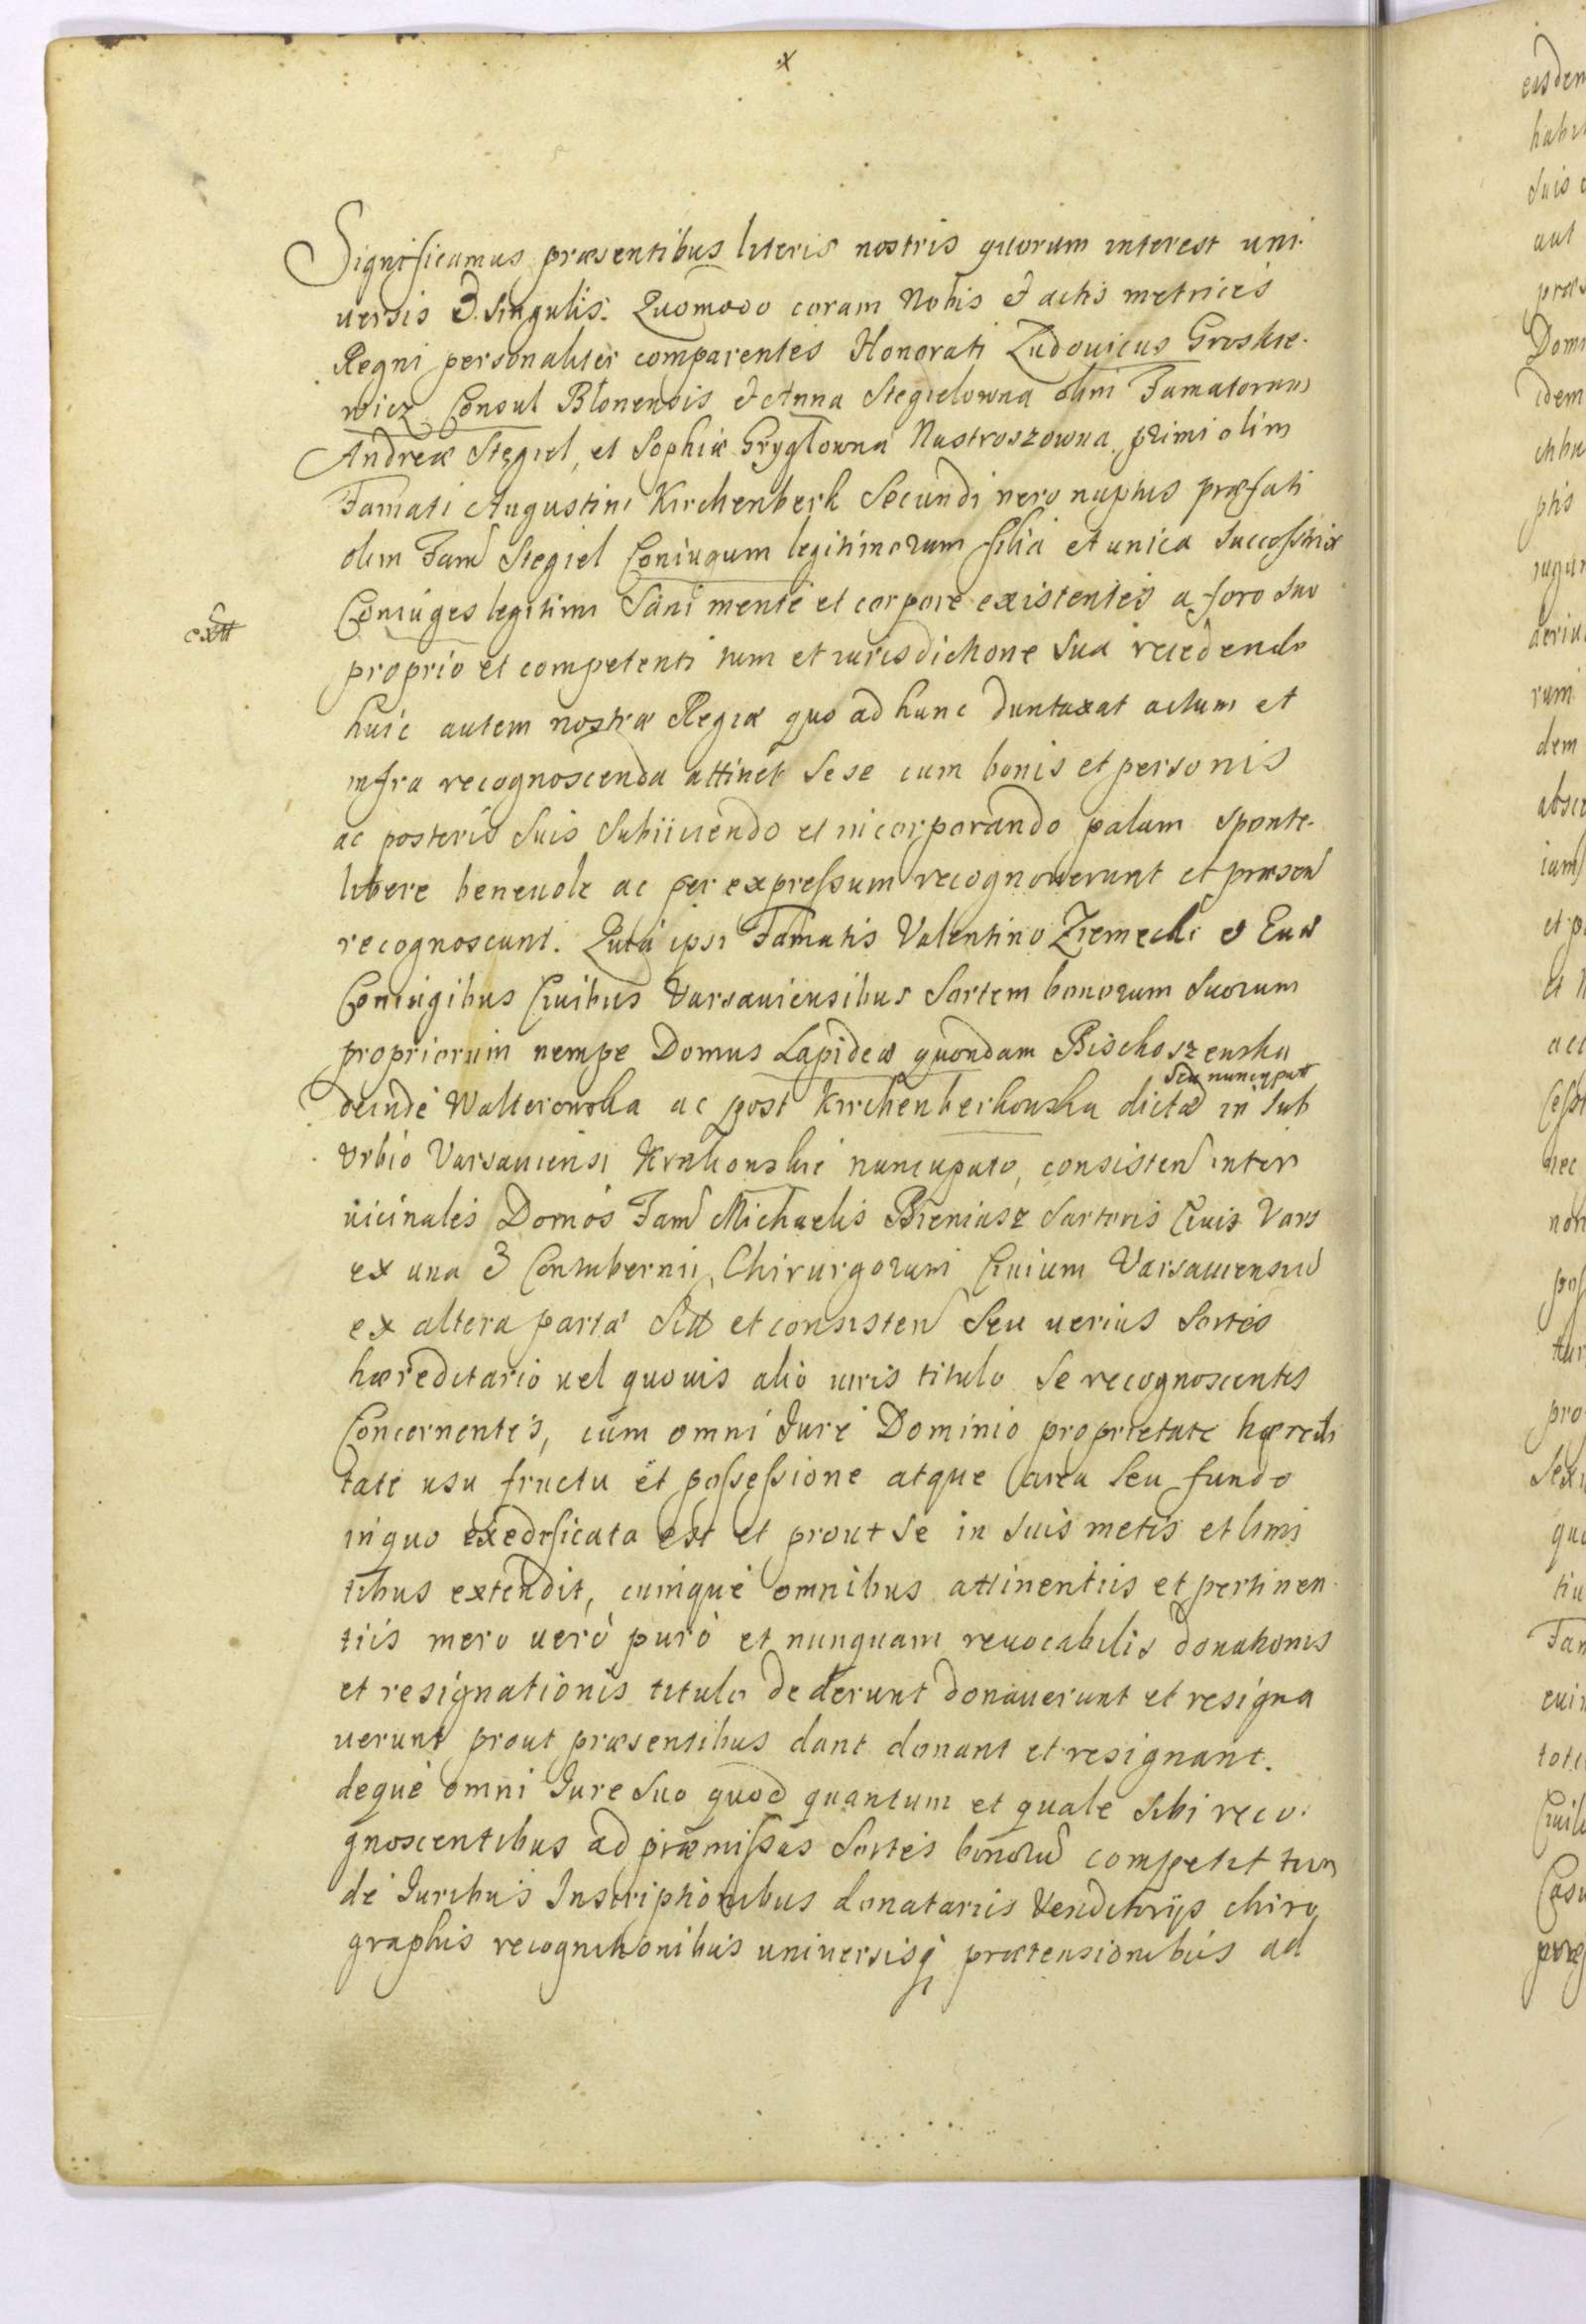 x
Significamus præsentibus literis nostris quorum interest uni-
uersis & singulis. Quomodo coram Nobis & actis metrices
Regni personaliter comparentes Honorati Ludouicus Groskie-
wicz Consul Błonensis & Anna Stegielowna olim Famatorum
Andreæ Stęgiel, et Sophiæ Gryglowna Nastroszowna, primi olim
Famati Augustini Kirchenberk Secundi vero nuptus præfati
olim Fam Stegiel Coniugum legitimorum filia et unica successtrix
Coniuges legitimi Sani mente et corpore existentes a foro suo
extt
proprio et competenti tum et iurisdictione sua recedendo
huic autem nostræ Regiæ quo ad hunc duntaxat actum et
infra recognoscenda attinet sese cum bonis et personis
ac posteris suis subiiciendo et incorporando palam sponte-
libere beneuole ac per expressum recognouerunt et præsen
recognoscunt. Quia ipsi Famatis Valentino Ziemecki & Euæ
Coniugibus Ciuibus Varsauiensibus Sortem bonorum suorum
propriorum nempe Domus Lapideæ quondam Bischoszenska
seu nuncupatt
deinde Walterowska ac post Kirchenberkowska dictæ in sub
Vrbio Varsauiensi Krakowskie nuncupato, consisten inter
uicinales Domos Fam Michaelis Bieniasz Sartoris Ciuis Vars
ex una & Contubernii Chirurgorum Ciuium Varsauiensiu
ex altera parta Sitt et consisten Seu uerius Sortes
hæreditario uel quouis alio iuris titulo se recognoscentes
Concernentes, cum omni Iure Dominio proprietate hæredi
tate usu fructu et possessione atque area seu fundo
in quo exedificata est et prout se in suis metis et limi
tibus extendit, cumque omnibus attinentiis et pertinen-
tiis mero uero puro et nunquam reuocabilis donationis
et resignationis titulo dederunt donauerunt et resigna
uerunt prout præsentibus dant donant et resignant.
deque omni Iure suo quod quantum et quale sibi reco-
gnoscentibus ad præmissas Sortes bonoru competit tum
de Iuribus Inscriptionibus donatariis Venditorijs chiro
graphis recognitionibus universisq prætensionibus ad